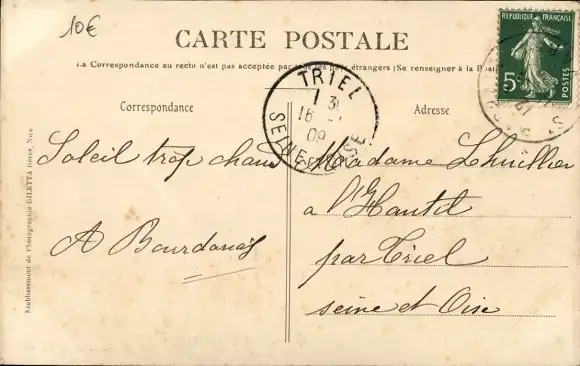 10€
CARTE POSTALE
La Correspondance au recto n'est pas acceptée par tous les pays étrangers (Se renseigner à la Poste)
RÉPUBLIQUE FRANÇAISE
5c
POSTES
TRIEL
13
16
09
SEINE-ET-OISE
Correspondance
Adresse
Soleil trop chaud
A Bourdonais
Madame Lhuillier
à l'Hautil
par Triel
seine et Oise
Etablissement de Photographie GILETTA frères, Nice